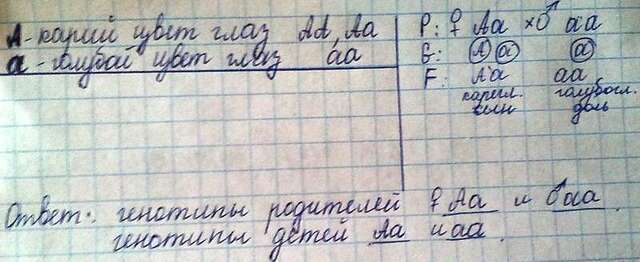 А - карий цвет глаз АА, Аа
а - голубой цвет глаз аа
Р: ♀ Аа × ♂ аа
G: А а а
F: Аа аа
карегл. голубогл.
сын дочь
Ответ: генотипы родителей ♀ Аа и ♂ аа.
генотипы детей Аа и аа.